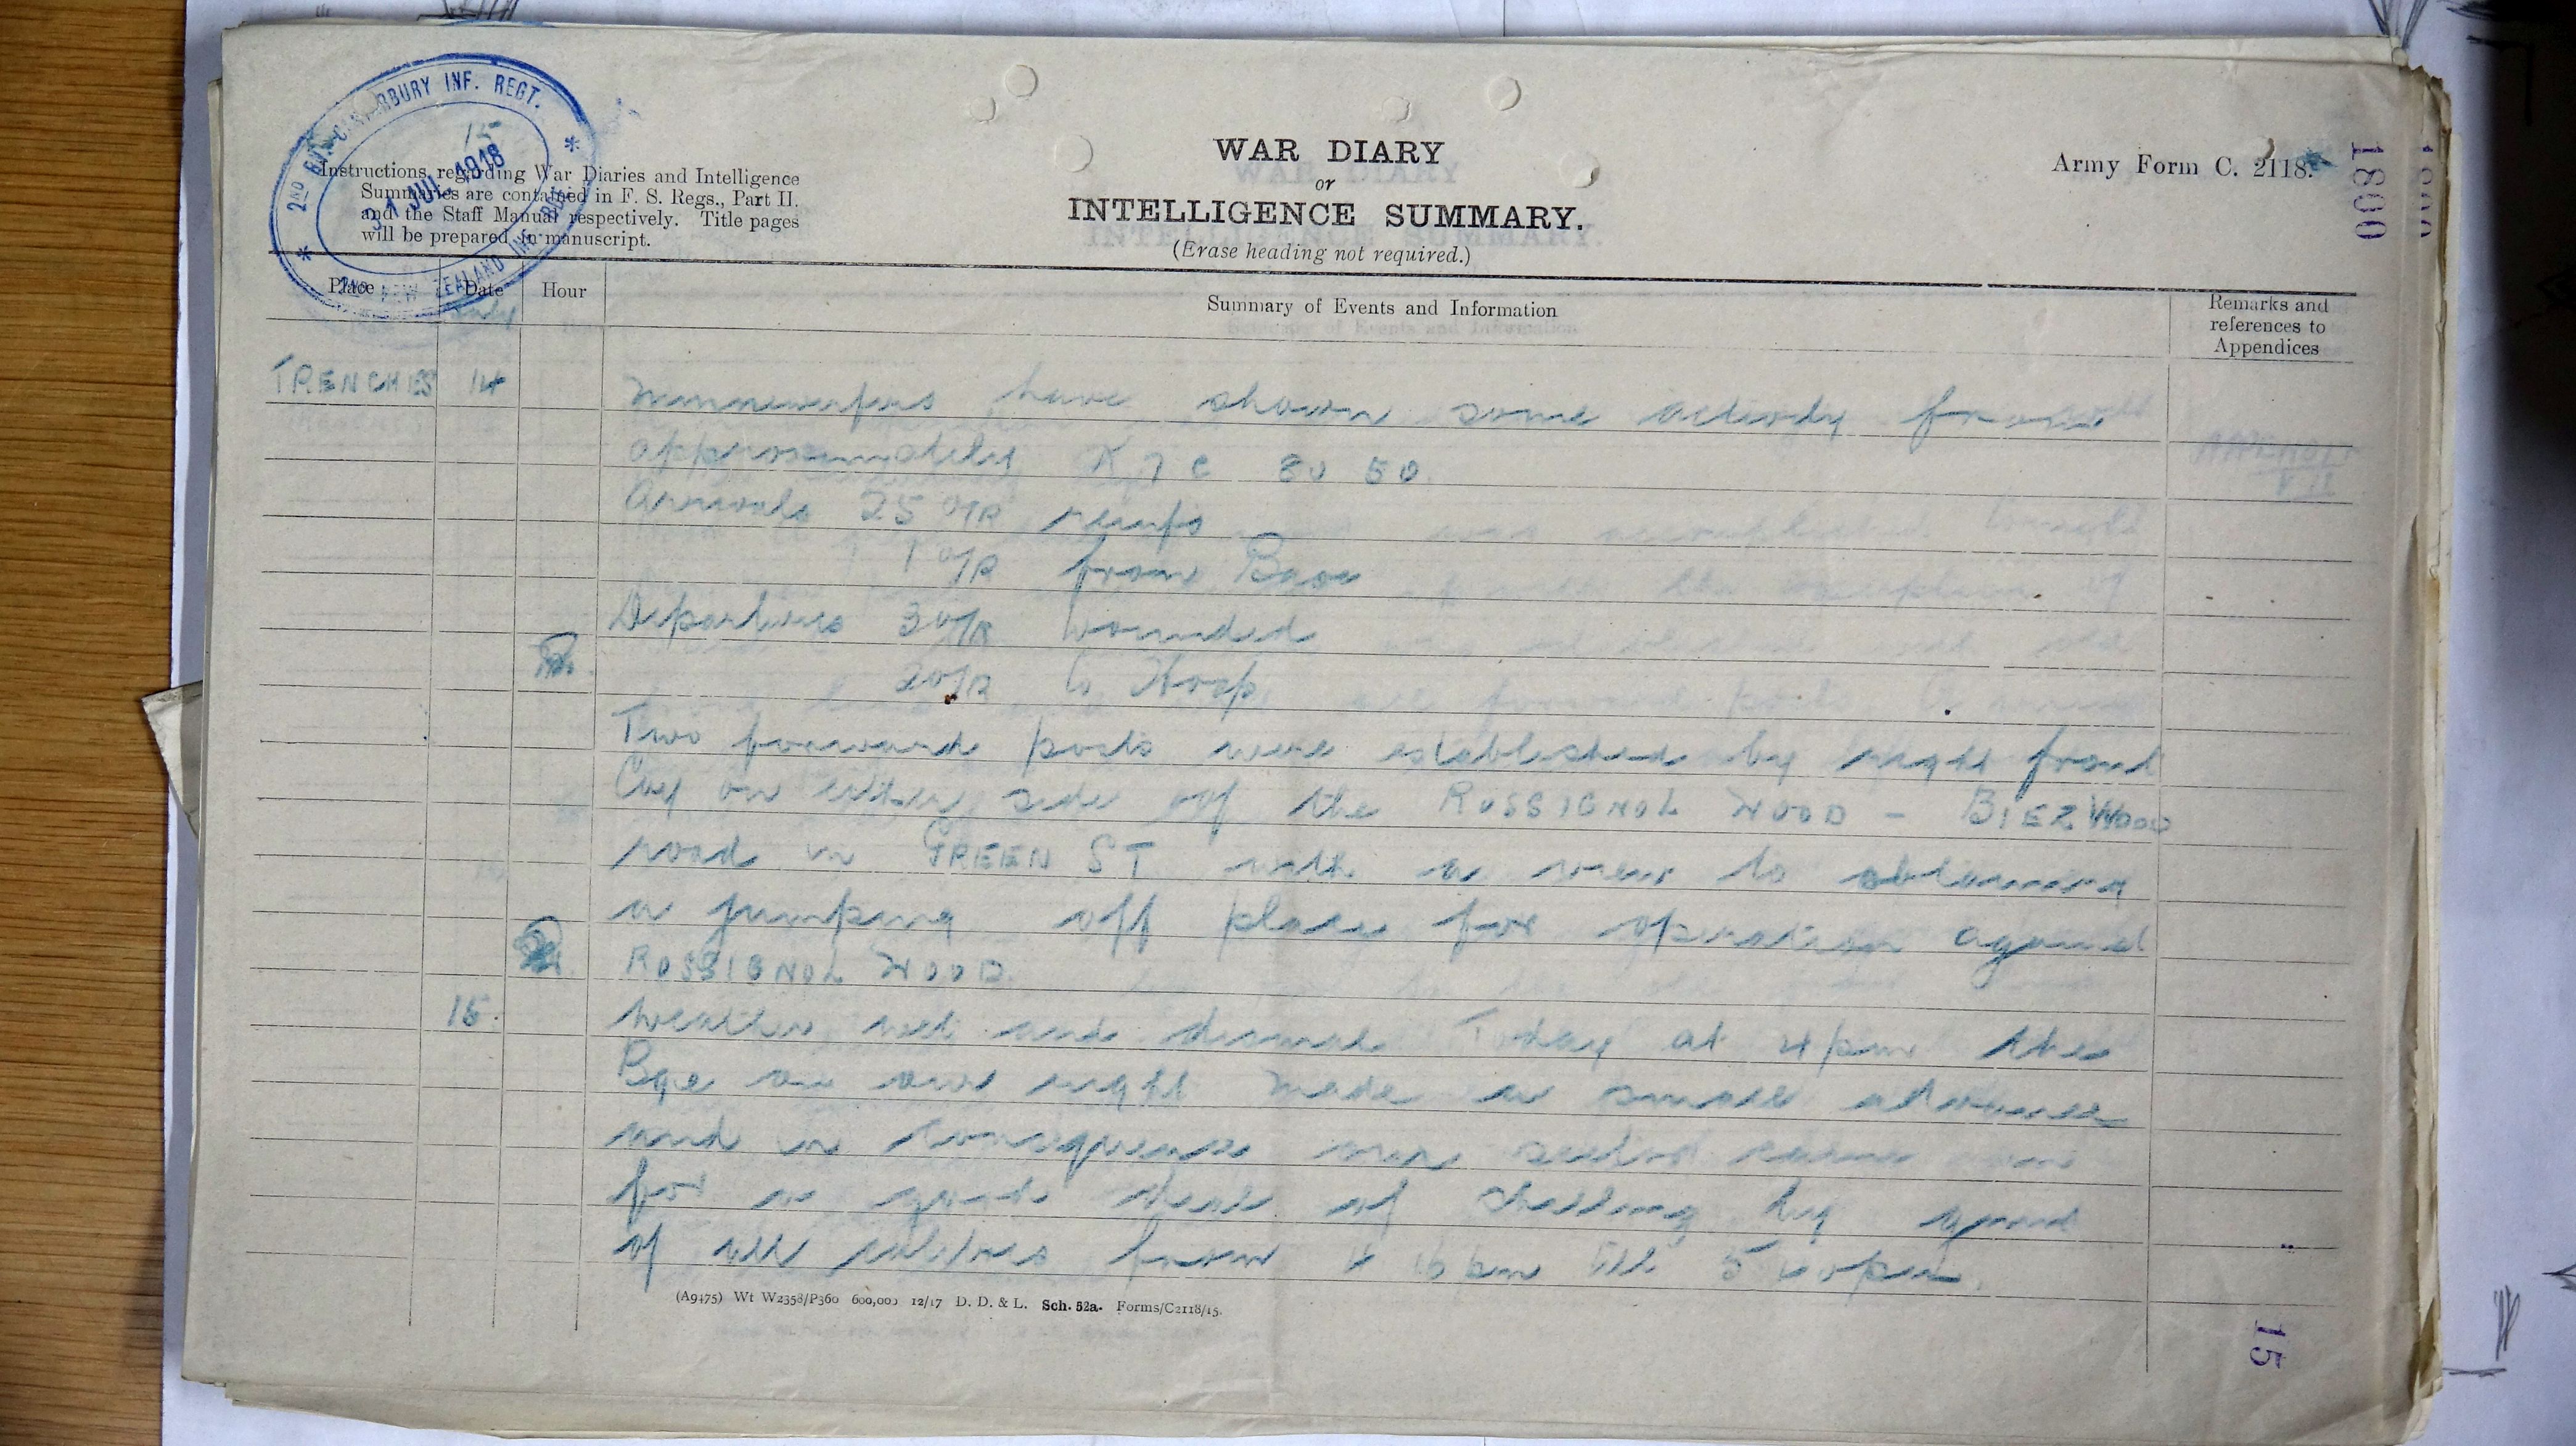 2ND BN. CANTERBURY INF. REGT.
15
31 JUL 1918
2ND NEW ZEALAND INF. BDE.
Instructions regarding War Diaries and Intelligence
Summaries are contained in F. S. Regs., Part II.
and the Staff Manual respectively. Title pages
will be prepared in manuscript.
WAR DIARY
or
INTELLIGENCE SUMMARY.
(Erase heading not required.)
Army Form C. 2118.
1800
Place Date Hour
July
Summary of Events and Information
Remarks and
references to
Appendices
TRENCHES 14 Minnenwerfers have shown some activity from
approximately K 7 c 80 50.
Arrivals 25 O/R reinfs
1 O/R from Base
Departures 3 O/R Wounded
2 O/R to Hosp
Two forward posts were established by right front
Coy on either side of the ROSSIGNOL WOOD - BIEZ WOOD
road in GREEN ST with a view to obtaining
a jumping off place for operation against
ROSSIGNOL WOOD.
15. Weather wet and dismal. Today at 4 pm the
Bge on our right made a small advance
and in consequence our sector came in
for a good deal of shelling by guns
of all calibres from 4 pm till 5 pm.
(A9475) Wt W2358/P360 600,000 12/17 D. D. & L. Sch. 52a. Forms/C2118/15.
15